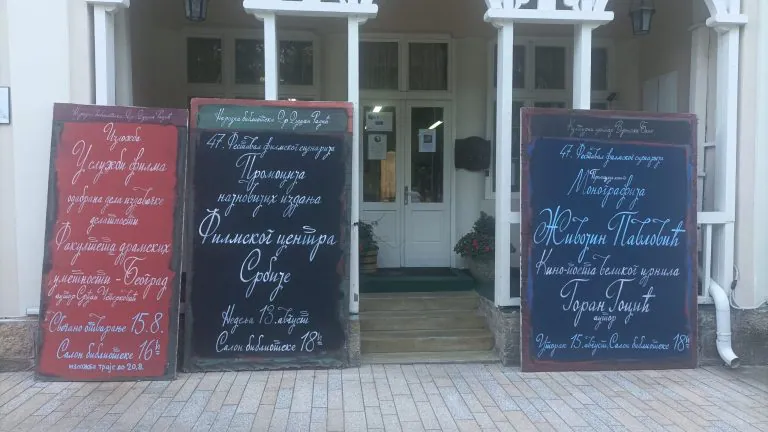 Народна библиотека „Др Душан Радић“
Изложба
У служби филма
одабрана дела издавачке
делатности
Факултета драмских
уметности - Београд
аутор Срђан
Свечано отварање 15.8.
Салон библиотеке 16h
изложба траје до 20.8.
Народна библиотека „Др Душан Радић“
47. Фестивал филмског сценарија
Промоција
најновијих издања
Филмског центра
Србије
Недеља 13. август
Салон библиотеке 18h
47. Фестивал филмског сценарија
Монографија
Живојин Павловић
Кино-поета великог црнила
Горан Гоцић
аутор
Уторак 15. август, Салон библиотеке 18h